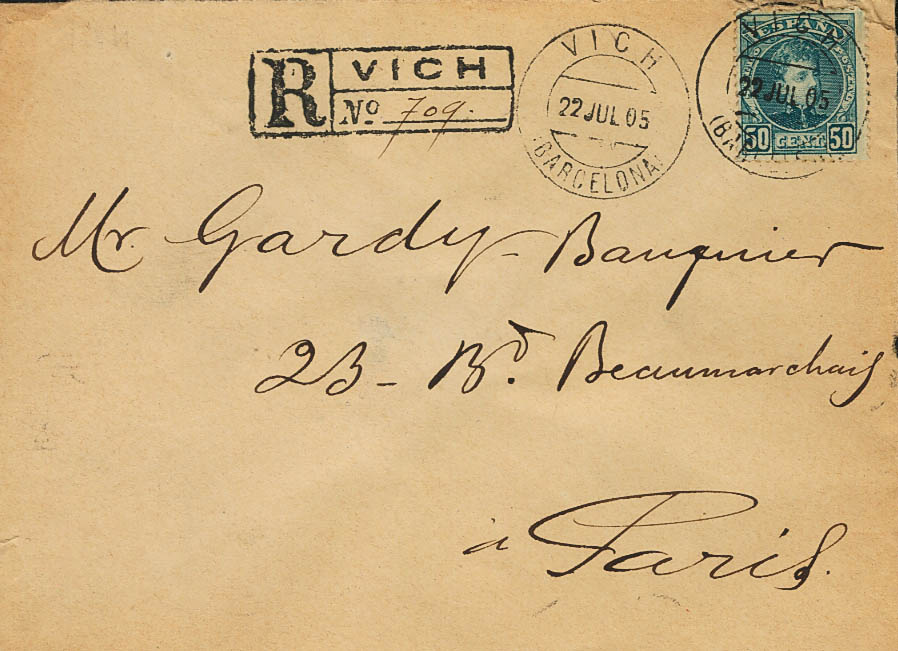 R VICH
Nº 709.
VICH
22 JUL 05
(BARCELONA)
ESPAÑA
22 JUL 05
50 CENT 50
Mr. Gardy - Banquier
23 - Bd. Beaumarchais
à Paris.